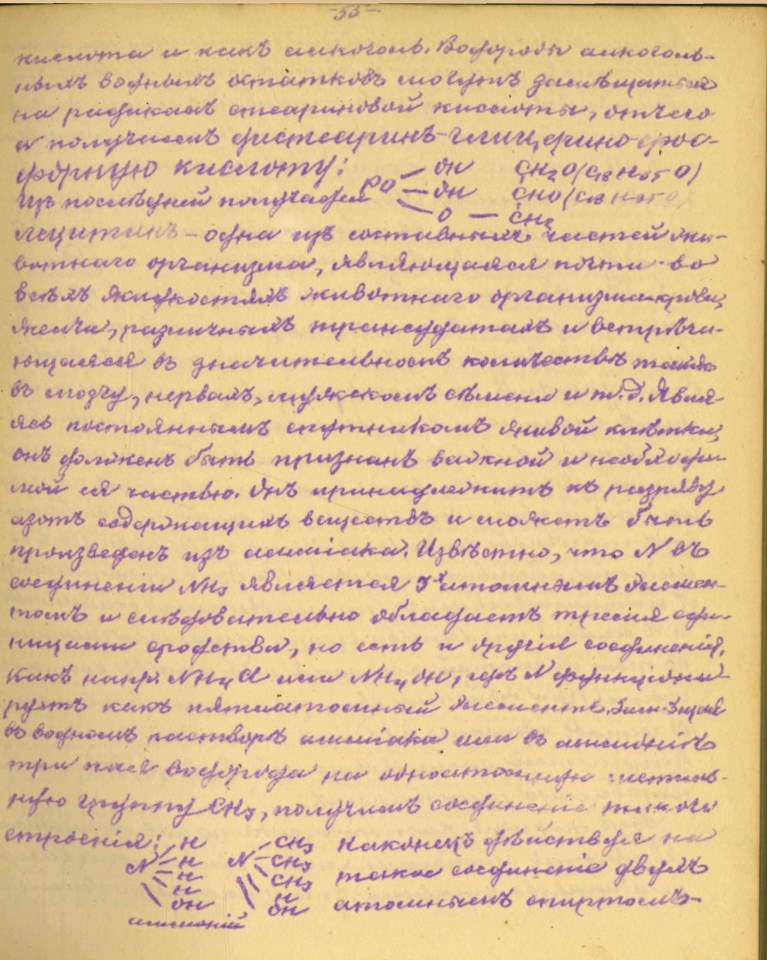 -55-
кислота и какъ алкоголь. Водороды алкоголь-
ныхъ водныхъ остатковъ могутъ замѣщаться
на радикалъ стеариновой кислоты, отчего
и получаемъ дистеаринъ-глицерино-фос-
форную кислоту:
PO OH CH2O(C18H35O)
OH CHO(C18H35O)
O — CH2
Изъ послѣдней получается
лецитинъ — одна изъ составныхъ частей жи-
вотнаго организма, являющаяся почти во
всѣхъ жидкостяхъ животнаго организма: крови,
желчи, различныхъ транссудатахъ и встрѣча-
ющаяся въ значительномъ количествѣ также
въ мозгу, нервахъ, мужскомъ сѣмени и т.д. Явля-
ясь постояннымъ спутникомъ живой клѣтки,
онъ долженъ быть признанъ важной и необходи-
мой ея частью. Онъ принадлежитъ къ разряду
азотъ содержащихъ веществъ и можетъ быть
произведенъ изъ амміака. Извѣстно, что N въ
соединеніи NH3 является 3хатомнымъ элемен-
томъ и слѣдовательно обладаетъ тремя еди-
ницами сродства, но есть и другія соединенія,
какъ напр. NH4Cl или NH4OH, гдѣ N функціони-
руетъ какъ пятиатомный элементъ.
въ водномъ растворѣ амміака или въ аммоніѣ
три пая водорода на одноатомную метиль-
ную группу CH3, получимъ соединеніе такого
строенія:
N H H H H OH
N CH3 CH3 CH3 H OH
аммоній
Наконецъ дѣйствуя на
такое соединеніе двухъ
атомнымъ спиртомъ-